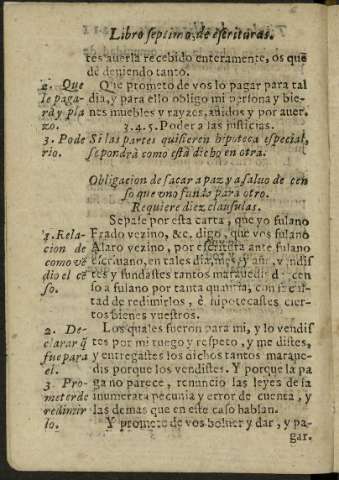 Libro septimo, de escrituras.
tes auerla recebido enteramente, os quę
dé deuiendo tanto.
2. Que
le paga-
rá y pla
zo.
Que prometo de vos lo pagar para tal
dia, y para ello obligo mi persona y bie-
nes muebles y rayzes, auidos y por auer.
3. 4. 5. Poder a las justicias.
3. Pode
rio.
Si las partes quisieren hipoteca especial,
se pondrà como està dicho en otra.
Obligacion de sacar a paz y a saluo de cen
so que vno fundò para otro.
Requiere diez clausulas.
1. Rela-
cion de
como vẽ
dio el cẽ
so.
Sepase por esta carta, que yo fulano
Frado vezino, &c. digo, que vos fulano
Alaro vezino, por escritura ante fulano
escriuano, en tales dia, mes, y año, vendis
tes y fundastes tantos marauedis de cen
so a fulano por tanta quantia, con facul-
tad de redimirlos, è hipotecastes cier-
tos bienes vuestros.
2. De-
clarar q̃
fue para
el.
Los quales fueron para mi, y lo vendis
tes por mi ruego y respeto, y me distes,
y entregastes los dichos tantos maraue-
dis porque los vendistes. Y porque la pa
3 Pro-
meter de
redimir
lo.
ga no parece, renuncio las leyes de la
inumerata pecunia y error de cuenta, y
las demas que en este caso hablan.
Y prometo de vos boluer y dar, y pa-
gar.